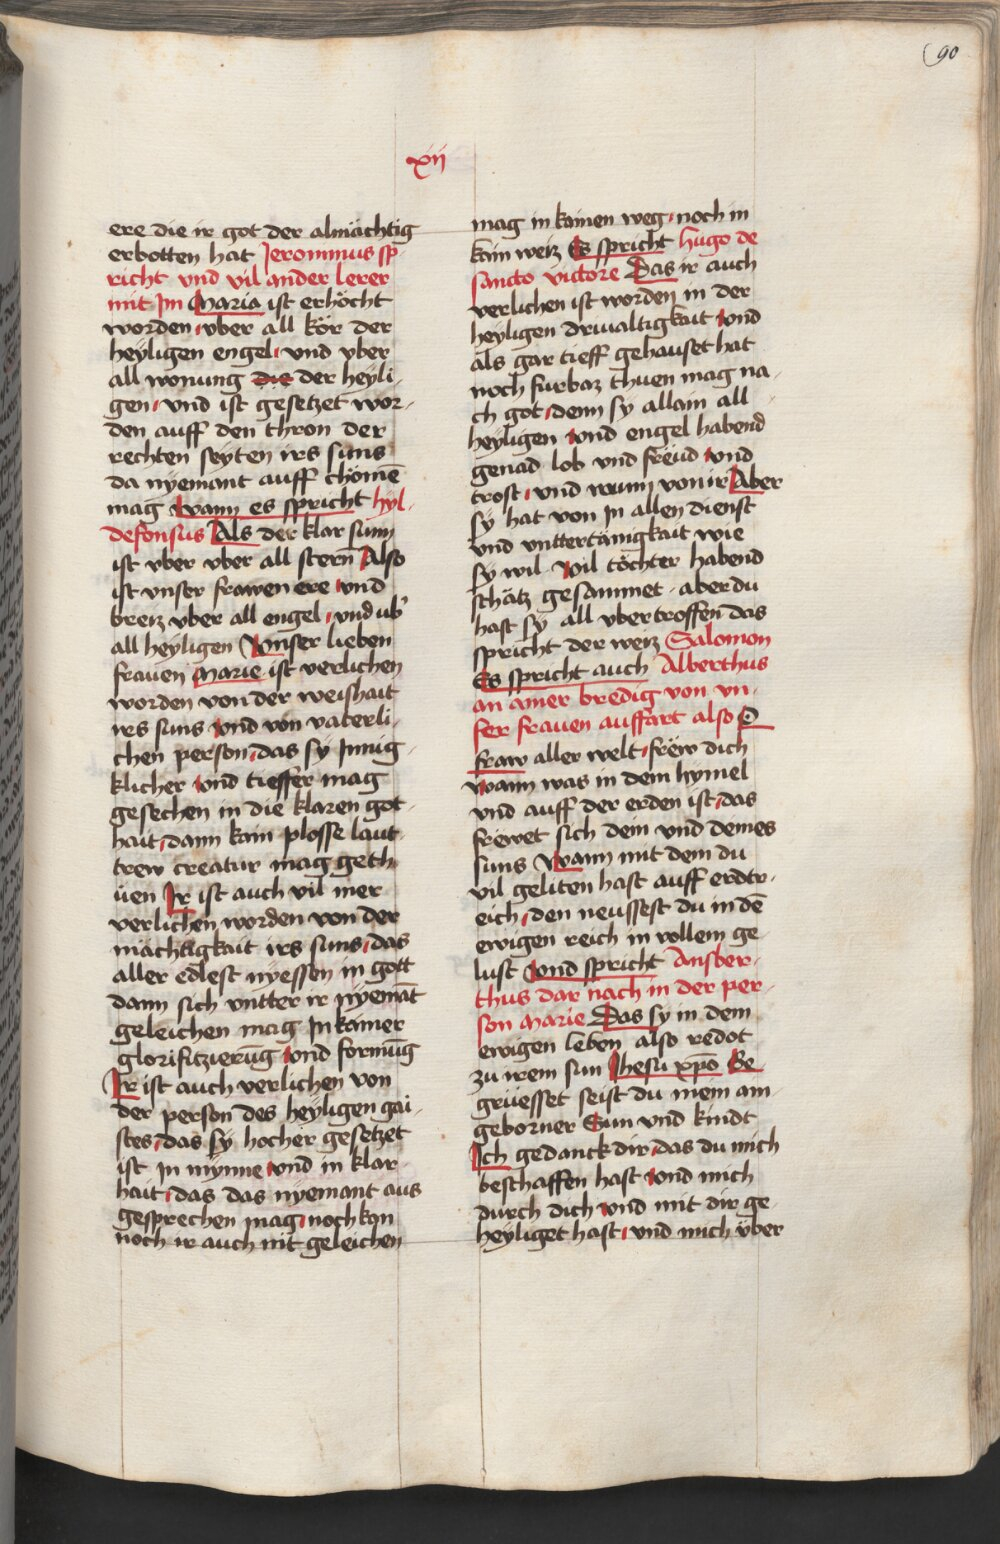 90
xij
ere die ir got der almächtig
erbotten hat Jeronimus sp
richt vnd vil ander lerer
mit Im Maria ist erhöcht
worden vber all kör der
heyligen engel vnd vber
all wonung die der heyli
gen vnd ist gesetzet wor
den auff den thron der
rechten seyten irs suns
da nyemant auff chömē
mag wann es spricht hyl
defonsus Als der klar sunn
ist vber vber all sterñ Also
ist vnser frawen ere vnd
breiz vber all engel vnd ub̾
all heyligen Vnser lieben
frauen Marie ist verlichen
worden von der weishait
irs suns vnd von vaterli
chen person das sy Innig
klicher vnd tieffer mag
gesechen in die klaren got
hait dann kain plosse laut
trew creatur mag geth
üen Ir ist auch vil mer
verlichen worden von der
mächtigkait irs suns das
aller edlest nyessen in gott
dann sich vntter ir nyemāt
geleichen mag In kainer
glorifitzierūg vnd formūg
Ir ist auch verlichen von
der person des heyligen gai
stes das sy hocher gesetzet
ist In mynne vnd in klar
hait das das nyemant aus
gesprechen mag noch kan
noch ir auch nit geleichen
mag in kainen weg noch in
kain weiz Es spricht Hugo de
sancto victore Das ir auch
verlichen ist worden in der
heyligen driualtigkait vnd
als gar tieff gehauset hat
noch furbaz thuen mag na
ch got denn sy allain all
heyligen vnd engel habend
genad lob vnd frëud vnd
trost vnd wunn von ir Aber
sy hat von In allen dienst
vnd vnttertänigkait wie
sy wil Vil töchter habend
schätz gesammet aber du
hast sy all vbertroffen das
spricht der weiz Salomon
Es spricht auch Alberthus
an ainer bredig von vn
ser frauen auffart also O
fraw aller welt frëw dich
wann was in dem hymel
vnd auff der erden ist das
frëwet sich dein vnd deines
suns Wann mit dem du
vil geliten hast auff erdtr
eich den neussest du in dē
ewigen reich in vollem ge
lust Vnd spricht Ansber
thus dar nach in der per
son Marie Das sy in dem
ewigen leben also redot
zu irem sun Jhesu xp̄o Ge
grüesset seist du mein ain
geborner Sun vnd kindt
Ich gedanck dir das du mich
beschaffen hast vnd mich
durch dich vnd mit dir ge
heyliget hast vnd mich über